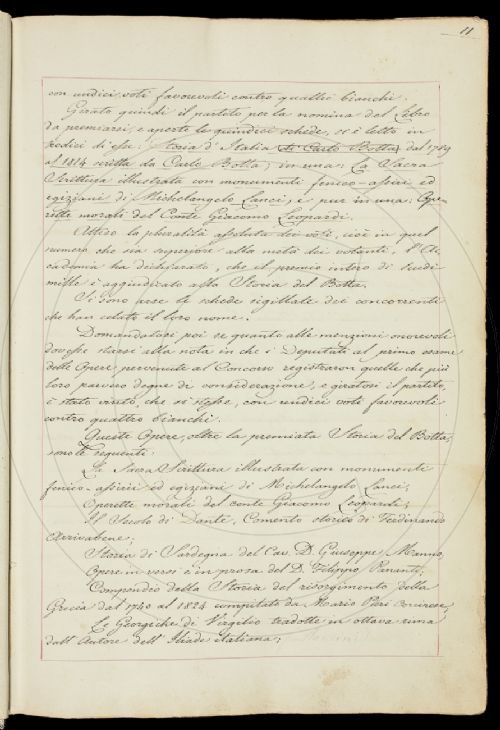 11
con undici voti favorevoli contro quattro bianchi.
Girato quindi il partito per la nomina del Libro
da premiarsi, e aperte le quindici schede, si è letto in
tredici di esse: Storia d'Italia di Carlo Botta dal 1789
al 1814 scritta da Carlo Botta; in una: La Sacra
Scrittura illustrata con monumenti fenico-assirj ed
egiziani di Michelangelo Lanci, e pur in una: Ope-
rette morali del Conte Giacomo Leopardi.
Atteso la pluralità assoluta dei voti, cioè in quel
numero che sia superiore alla metà dei votanti, l'Ac-
cademia ha dichiarato, che il premio intero di scudi
mille è aggiudicato alla Storia del Botta.
Si sono arse le schede sigillate dei concorrenti
che han celato il loro nome.
Domandatosi poi se quanto alle menzioni onorevoli
dovesse starsi alla nota in che i Deputati al primo esame
delle Opere pervenute al Concorso registraron quelle che più
loro parvero degne di considerazione, e giratosi il partito,
è stato vinto, che si stesse, con undici voti favorevoli
contro quattro bianchi.
Queste Opere, oltre la premiata Storia del Botta,
sono le seguenti:
La Sacra Scrittura illustrata con monumenti
fenico-assirj ed egiziani di Michelangelo Lanci;
Operette morali del conte Giacomo Leopardi;
Il Secolo di Dante, Comento storico di Ferdinando
Arrivabene;
Storia di Sardegna del Cav. D. Giuseppe Manno;
Opere in versi e in prosa del D. Filippo Pananti;
Compendio della Storia del risorgimento della
Grecia dal 1740 al 1824 compilato da Mario Pieri Corcirese;
Le Georgiche di Virgilio tradotte in ottava rima
dall'Autore dell'Iliade italiana;